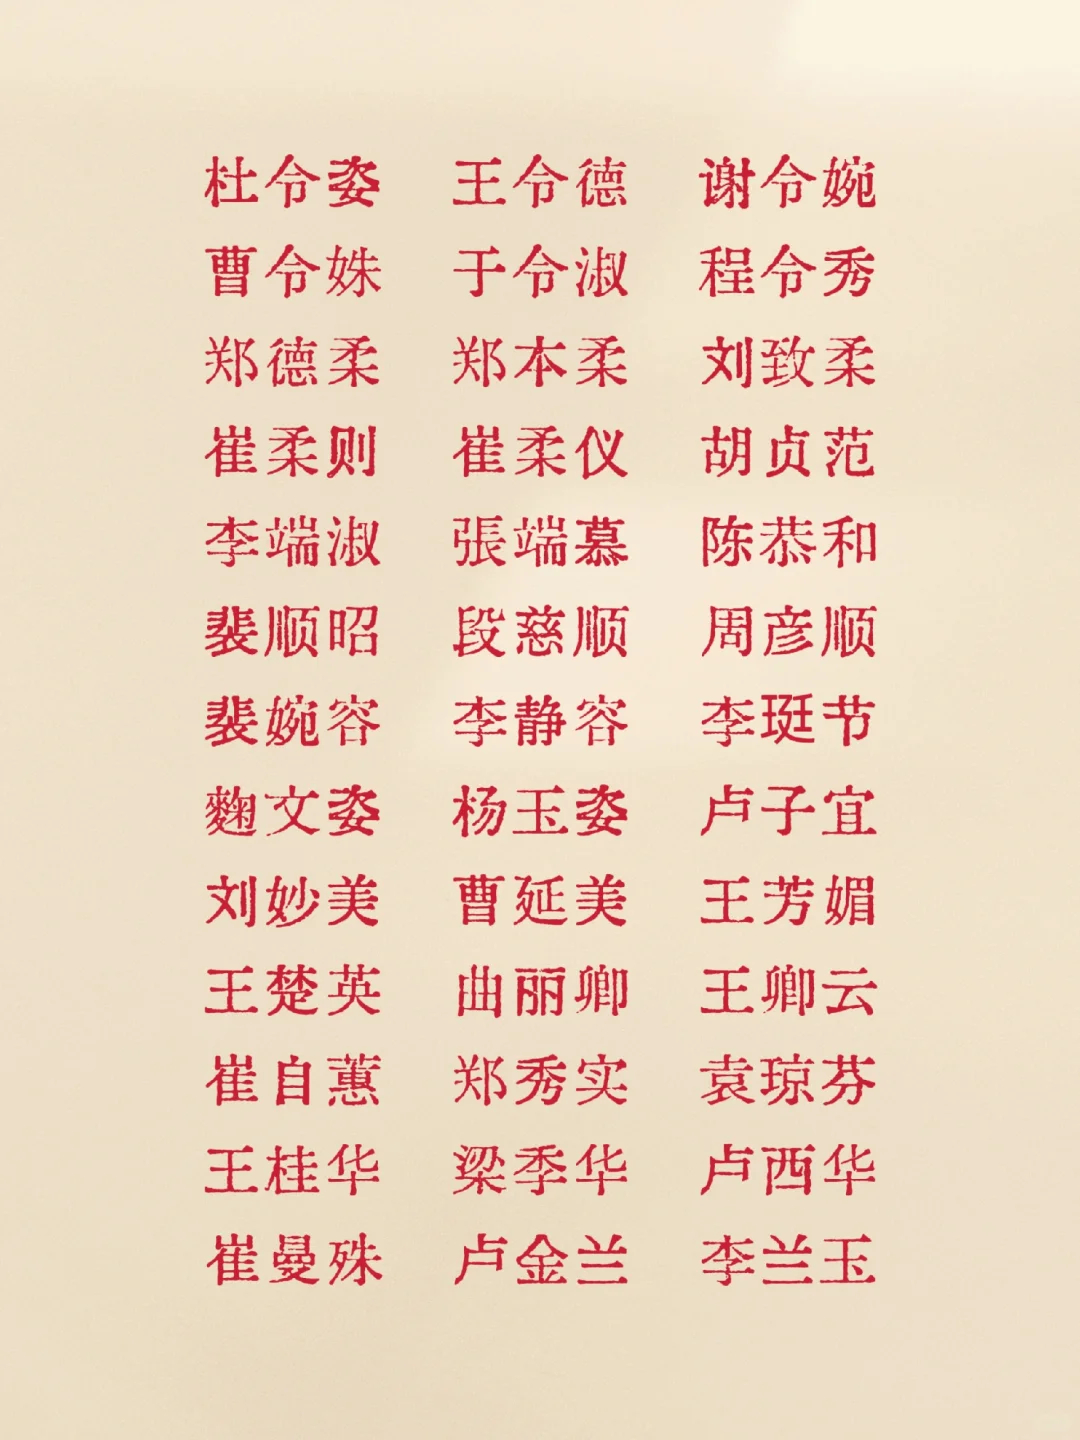 杜令姿 王令德 谢令婉
曹令姝 于令淑 程令秀
郑德柔 郑本柔 刘致柔
崔柔则 崔柔仪 胡贞范
李端淑 張端慕 陈恭和
裴顺昭 段慈顺 周彦顺
裴婉容 李静容 李珽节
麴文姿 杨玉姿 卢子宜
刘妙美 曹延美 王芳媚
王楚英 曲丽卿 王卿云
崔自蕙 郑秀实 袁琼芬
王桂华 梁季华 卢西华
崔曼殊 卢金兰 李兰玉